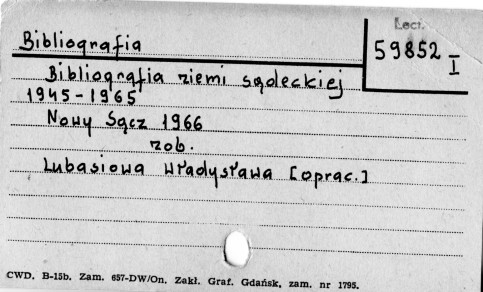 Lect.
Bibliografia
59852 I
Bibliografia ziemi sądeckiej
1945-1965
Nowy Sącz 1966
zob.
Lubasiowa Władysława [oprac.]
CWD. B-15b. Zam. 657-DW/On. Zakł. Graf. Gdańsk, zam. nr 1795.